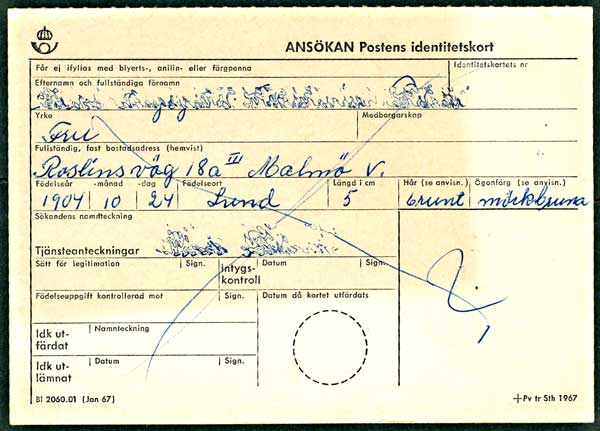 ANSÖKAN Postens identitetskort
Får ej ifyllas med blyerts-, anilin- eller färgpenna
Identitetskortets nr
Efternamn och fullständiga förnamn
Yrke
Medborgarskap
Fru
Fullständig, fast bostadsadress (hemvist)
Roslins väg 18a III Malmö V.
Födelseår -månad -dag Födelseort Längd i cm Hår (se anvisn.) Ögonfärg (se anvisn.)
1904 10 24 Lund 5 brunt mörkbruna
Sökandens namnteckning
Tjänsteanteckningar
Sätt för legitimation Sign. Intygs-kontroll Datum Sign.
Födelseuppgift kontrollerad mot Sign. Datum då kortet utfärdats
Idk ut-färdat Namnteckning
Idk ut-lämnat Datum Sign.
Bl 2060.01 (Jan 67)
Pv tr Sth 1967